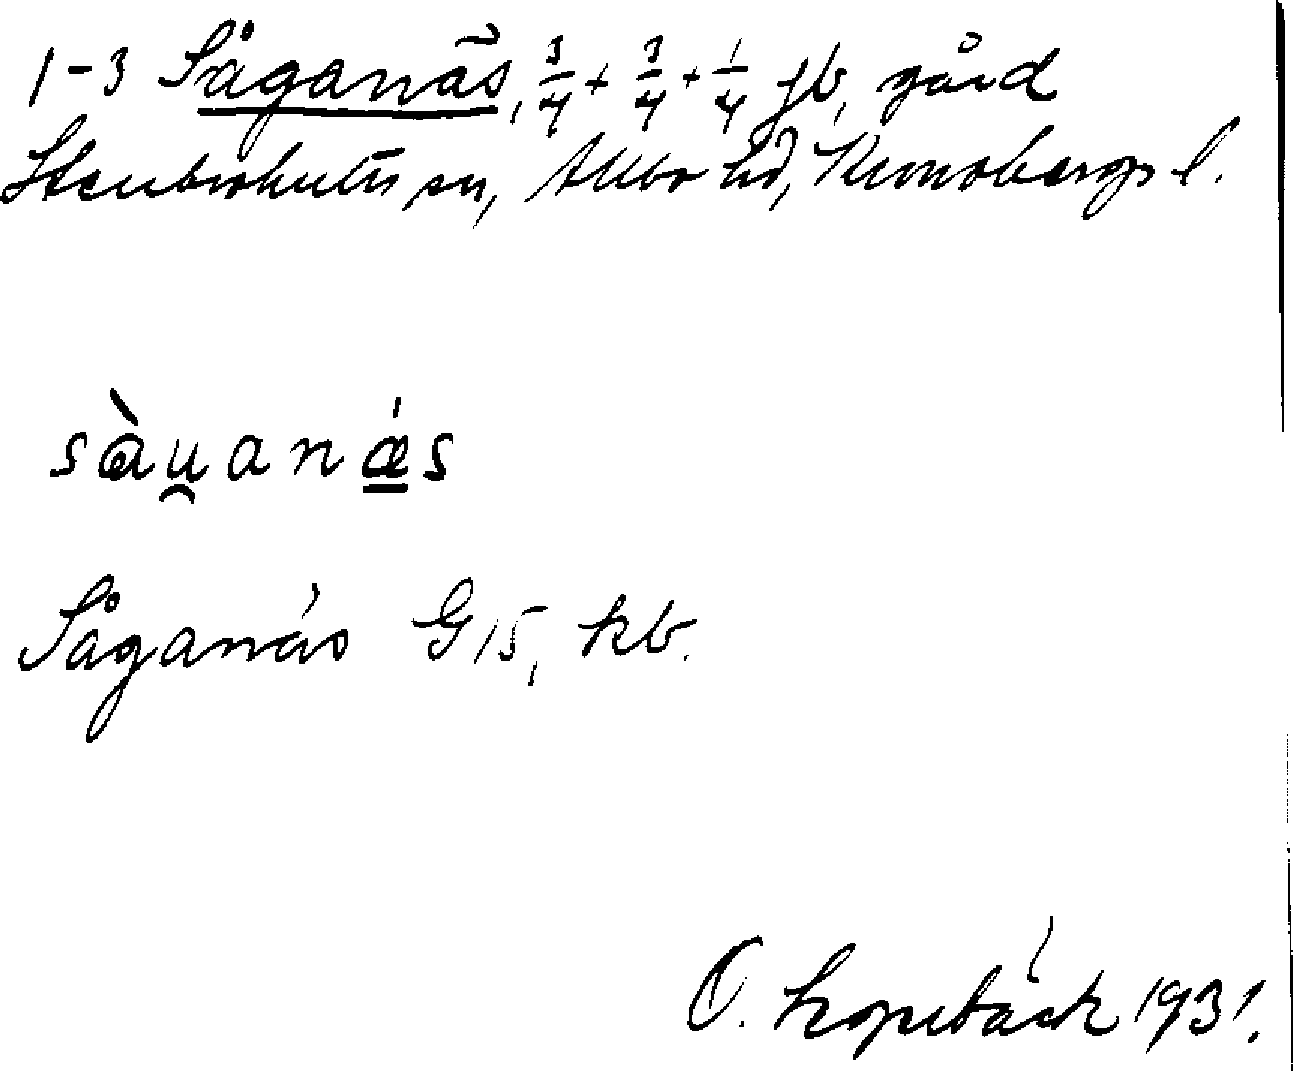 1-3 Såganäs, 3/4 + 3/4 + 1/4 jb, gård
Stenbrohults sn, Allbo hd, Kronobergs l.
sàu̯anǽs
Såganäs G15, kb.
O. 1931.